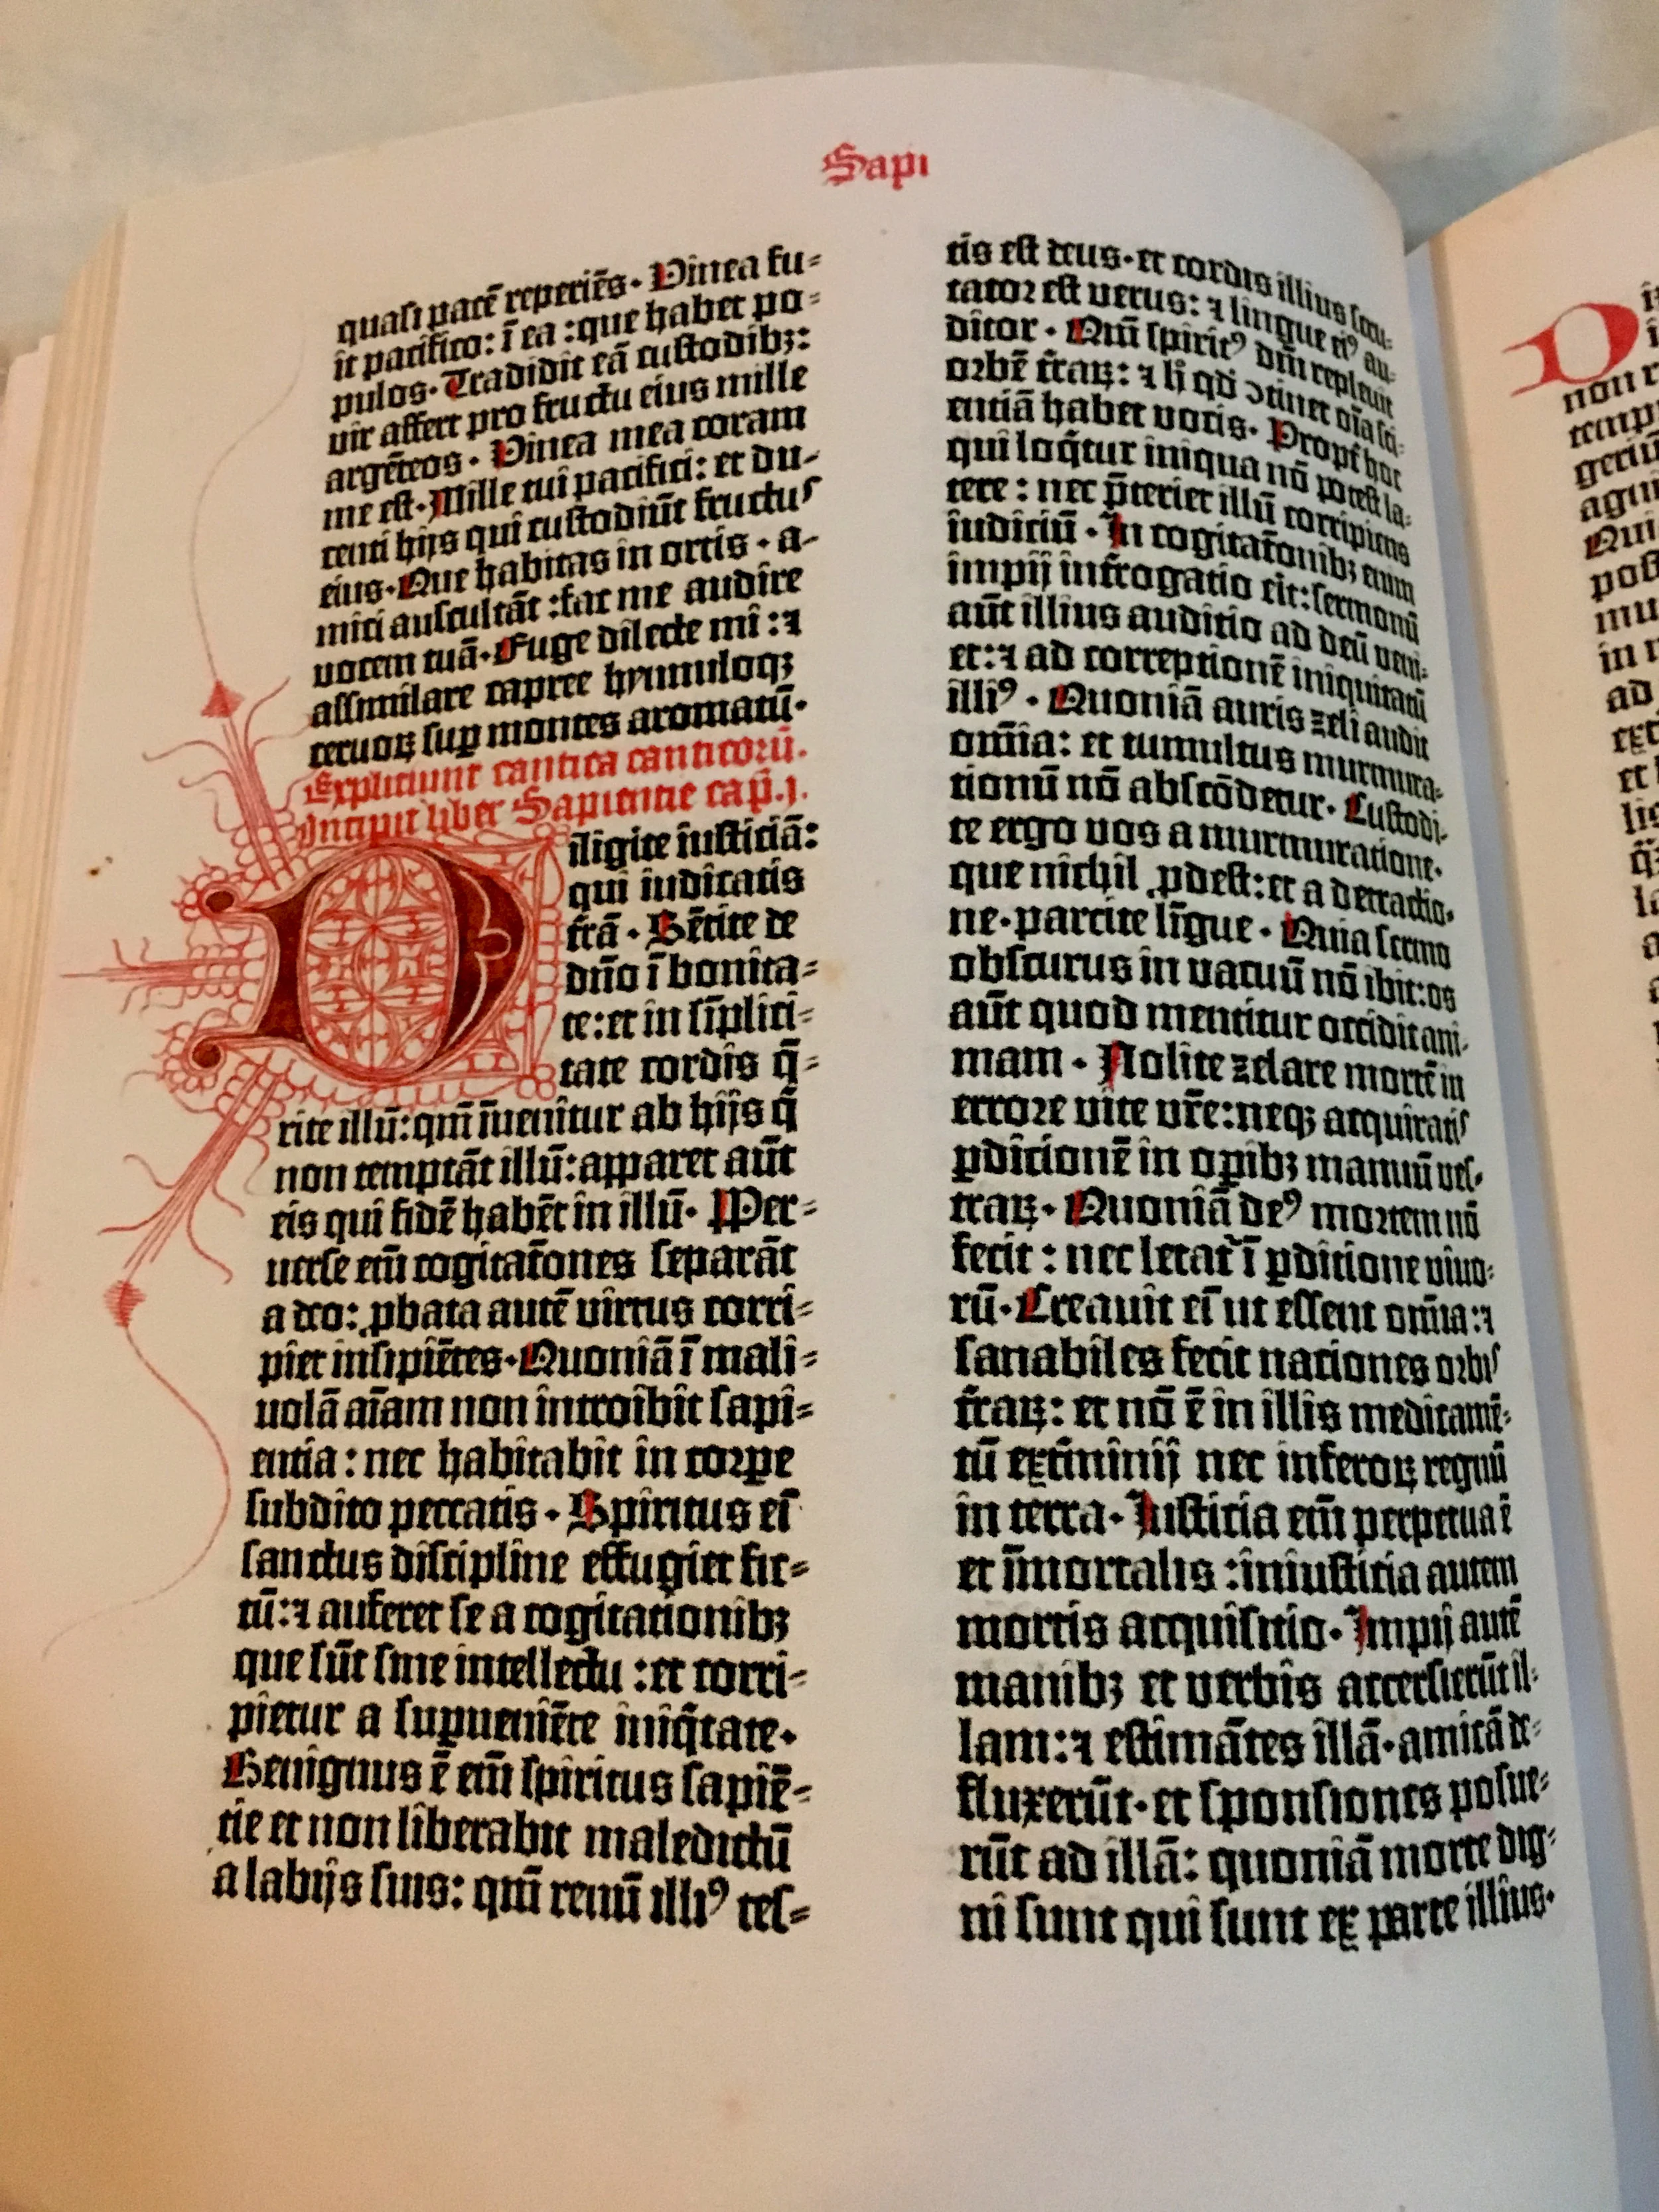 Sapi
quasi pacē reperiēs. Vinea fu=
it pacifico: ī ea :que habet po=
pulos. Tradidit eā custodibꝫ:
vir affert pro fructu eius mille
argēteos. Vinea mea coram
me est. Mille tui pacifici: et du-
centi hijs qui custodiūt fructus
eius. Que habitas in ortis. a-
mici auscultāt :fac me audire
vocem tuā. Fuge dilecte mi :⁊
assimilare capree hynnuloqꝫ
ceruoꝝ suꝑ montes aromatū.
Expliciunt cantica canticorū.
Incipit liber Sapientie cap̄.j.
Diligite iusticiā:
qui iudicatis
t̄rā. Sētite de
dn̄o ī bonita=
te:et in sīplici=
tate cordis q̄=
rite illū:qm̄ īuenitur ab hijs q̄
non temptāt illū:apparet aūt
eis qui fidē habēt in illū. Per=
uerse em̄ cogitat̄ones separāt
a deo: ꝓbata autē virtus corri=
piet insipiētes. Quoniā ī mali=
uolā aīam non introibit sapi=
entia: nec habitabit in corꝑe
subdito peccatis. Spiritus em̄
sanctus discipline effugiet fic=
tū:⁊ auferet se a cogitationibꝫ
que sūt sine intellectu :et corri=
pietur a suꝑueniēte iniq̄tate.
Benignus ē em̄ spiritus sapiē=
tie et non liberabit maledictū
a labijs suis: qm̄ renū illiꝰ tes=
tis est deus. et cordis illius scru-
tator est verus: ⁊ lingue eiꝰ au-
ditor. Qm̄ spiritꝰ dn̄i repleuit
orbē t̄raꝝ: ⁊ h̄ qd̄ ꝯtinet oīa sci-
entiā habet vocis. Propt̄ hoc
qui loq̄tur iniqua nō potest la-
tere : nec p̄teriet illū corripiens
iudiciū. In cogitat̄onibꝫ enim
impij int̄rogatio erit:sermonū
aūt illius auditio ad deū veni-
et:⁊ ad correptionē iniquitatū
illiꝰ. Quoniā auris zeli audit
om̄ia: et tumultus murmura-
tionū nō abscōdetur. Custodi-
te ergo vos a murmuratione.
que nichil ꝓdest:et a detractio-
ne. parcite līgue. Quia sermo
obscurus in vacuū nō ibit:os
aūt quod mentitur occidit ani-
mam. Nolite zelare mortē in
errore vite vr̄e:neqꝫ acquiratis
ꝑdicionē in oꝑibꝫ manuū ves-
traꝝ. Quoniā deꝰ mortem nō
fecit : nec letat̄ ī ꝑditione viuo-
rū. Creauit em̄ ut essent om̄ia:⁊
sanabiles fecit nationes orbis
t̄raꝝ: et nō ē in illis medicamē-
tū ext̄minij nec inferoꝝ regnū
in terra. Iusticia em̄ perpetua ē
et īmortalis :iniusticia autem
mortis acquisitio. Impij autē
manibꝫ et verbis accersierūt il-
lam:⁊ estimātes illā. amicā de-
fluxerūt. et sponsiones posue-
rūt ad illā: quoniā morte dig-
ni sunt qui sunt ex parte illius.